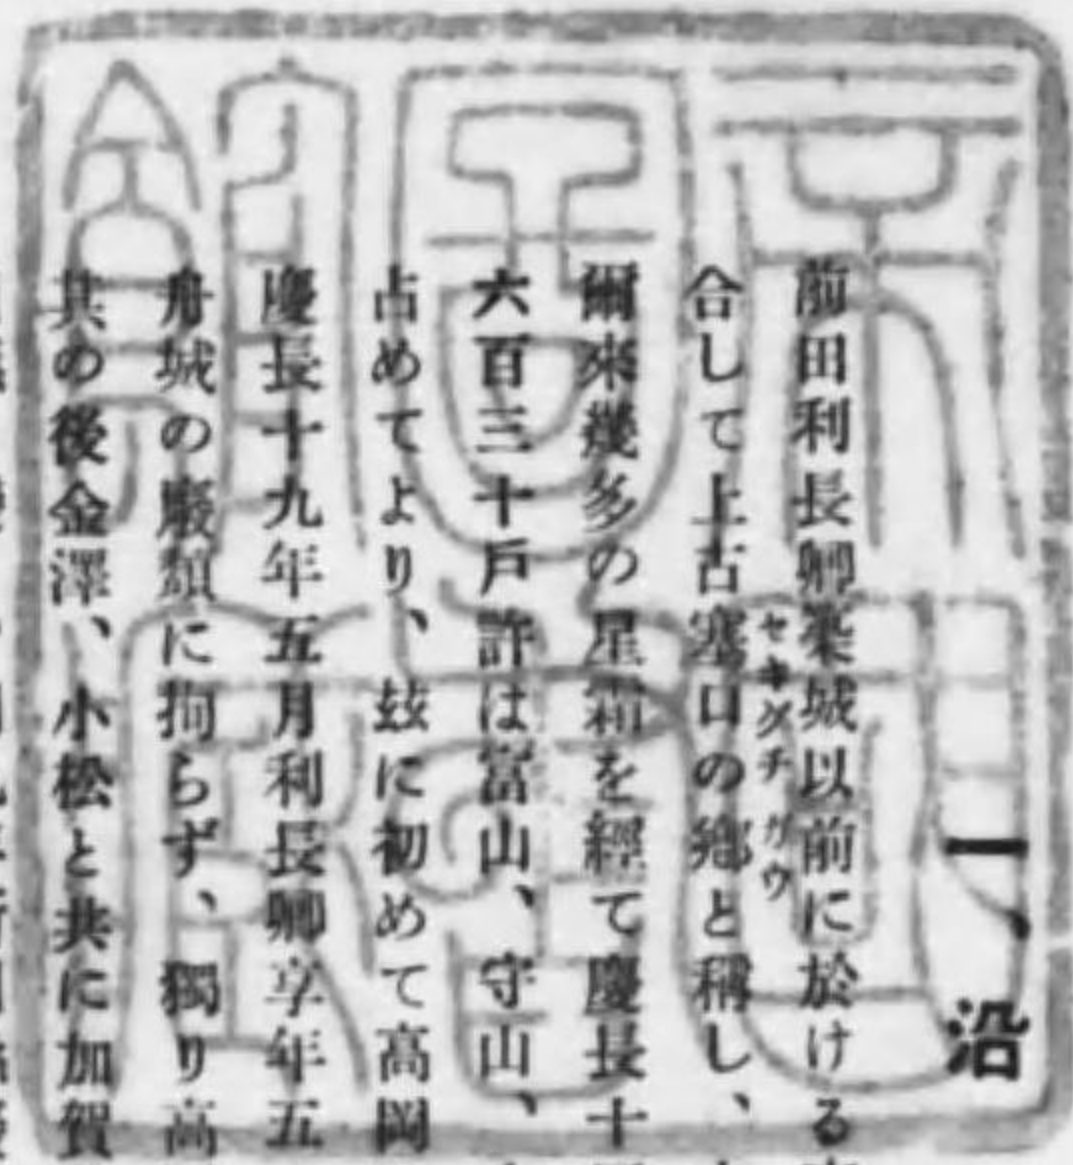 一、沿
前田利長卿築城以前に於ける
合して上古塞口の鄕と稱し、
セキグチ ガウ
爾來幾多の星霜を經て慶長十
六百三十戶許は富山、守山、
占めてより、玆に初めて高岡
慶長十九年五月利長卿享年五
舟城の廢頽に拘らず、獨り高
其の後金澤、小松と共に加賀